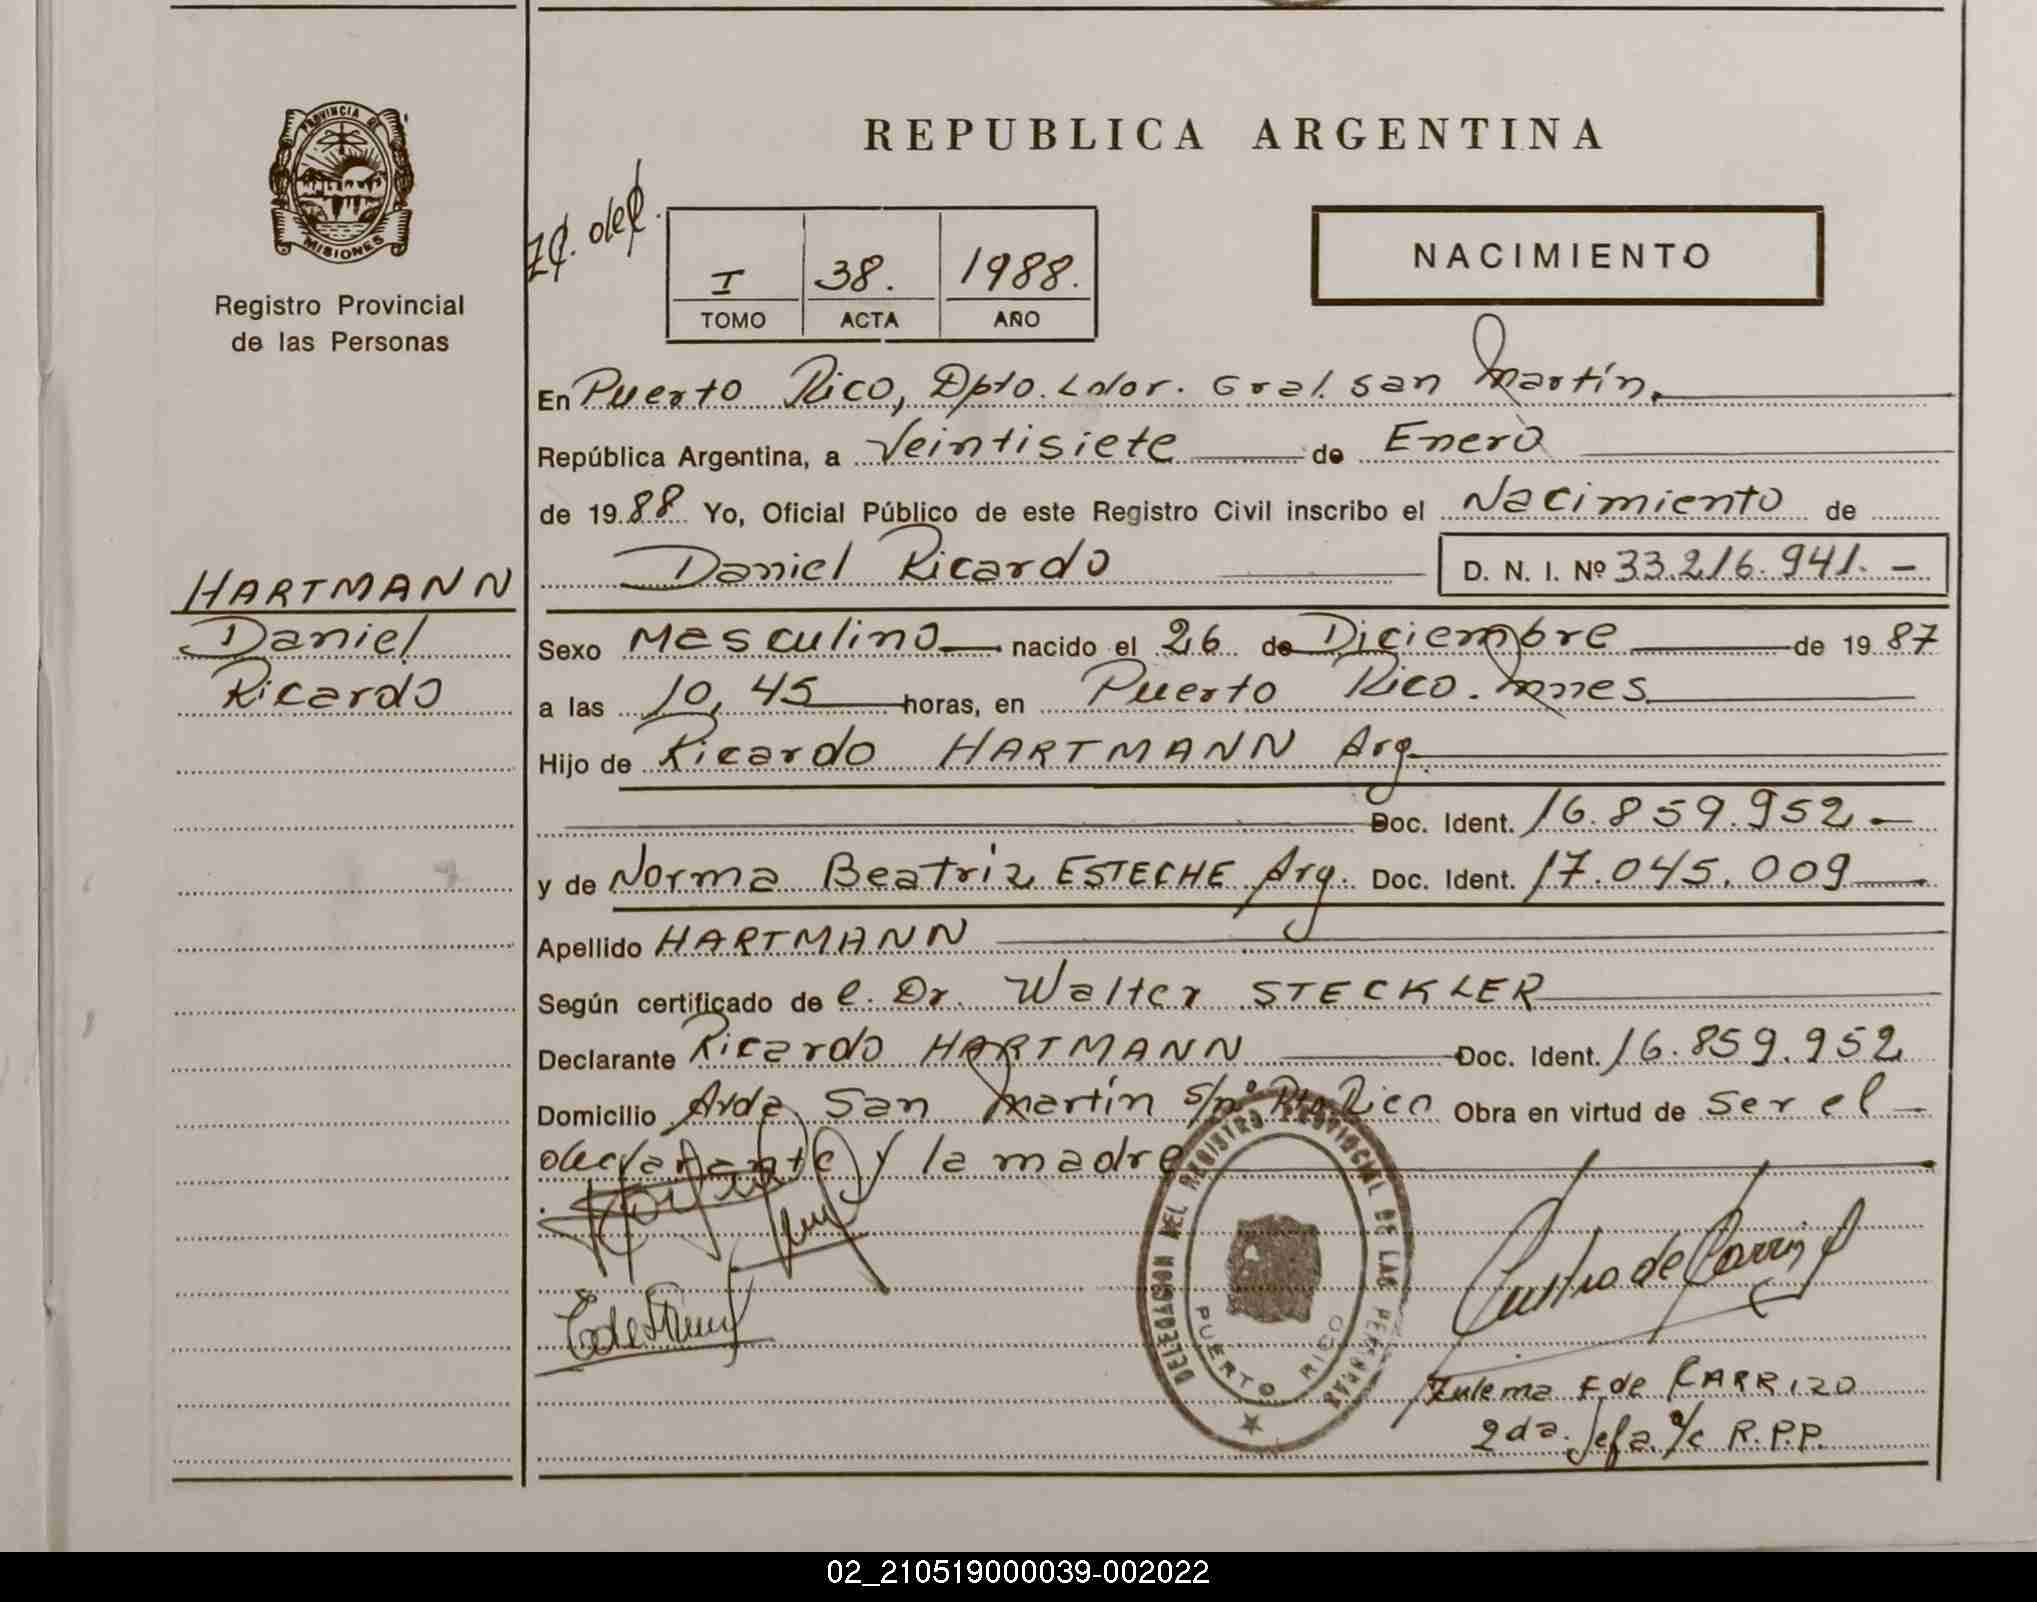 PROVINCIA DE
MISIONES
Registro Provincial
de las Personas
HARTMANN
Daniel
Ricardo
REPUBLICA ARGENTINA
I 38. 1988.
TOMO ACTA AÑO
NACIMIENTO
En Puerto Rico, Dpto. Ldor. Gral. San Martín.
República Argentina, a Veintisiete de Enero
de 1988 Yo, Oficial Público de este Registro Civil inscribo el Nacimiento de
Daniel Ricardo D. N. I. Nº 33.216.941.-
Sexo Masculino nacido el 26 de Diciembre de 1987
a las 10,45 horas, en Puerto Rico. Mnes.
Hijo de Ricardo HARTMANN Arg.
Doc. Ident. 16.859.952.-
y de Norma Beatriz ESTECHE Arg. Doc. Ident. 17.045.009
Apellido HARTMANN
Según certificado de l. Dr. Walter STECKLER
Declarante Ricardo HARTMANN Doc. Ident. 16.859.952
Domicilio Avda San Martín s/nº Pto Rico Obra en virtud de ser el
declarante y la madre
DELEGACION DEL REGISTRO PROVINCIAL DE LAS PERSONAS
PUERTO RICO
Zulema F de CARRIZO
2da. Jefa a/c R.P.P.
02_210519000039-002022